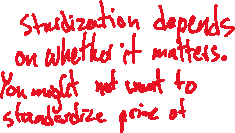 Standization depends
on whether it matters.
You might not want to
standardize prime of